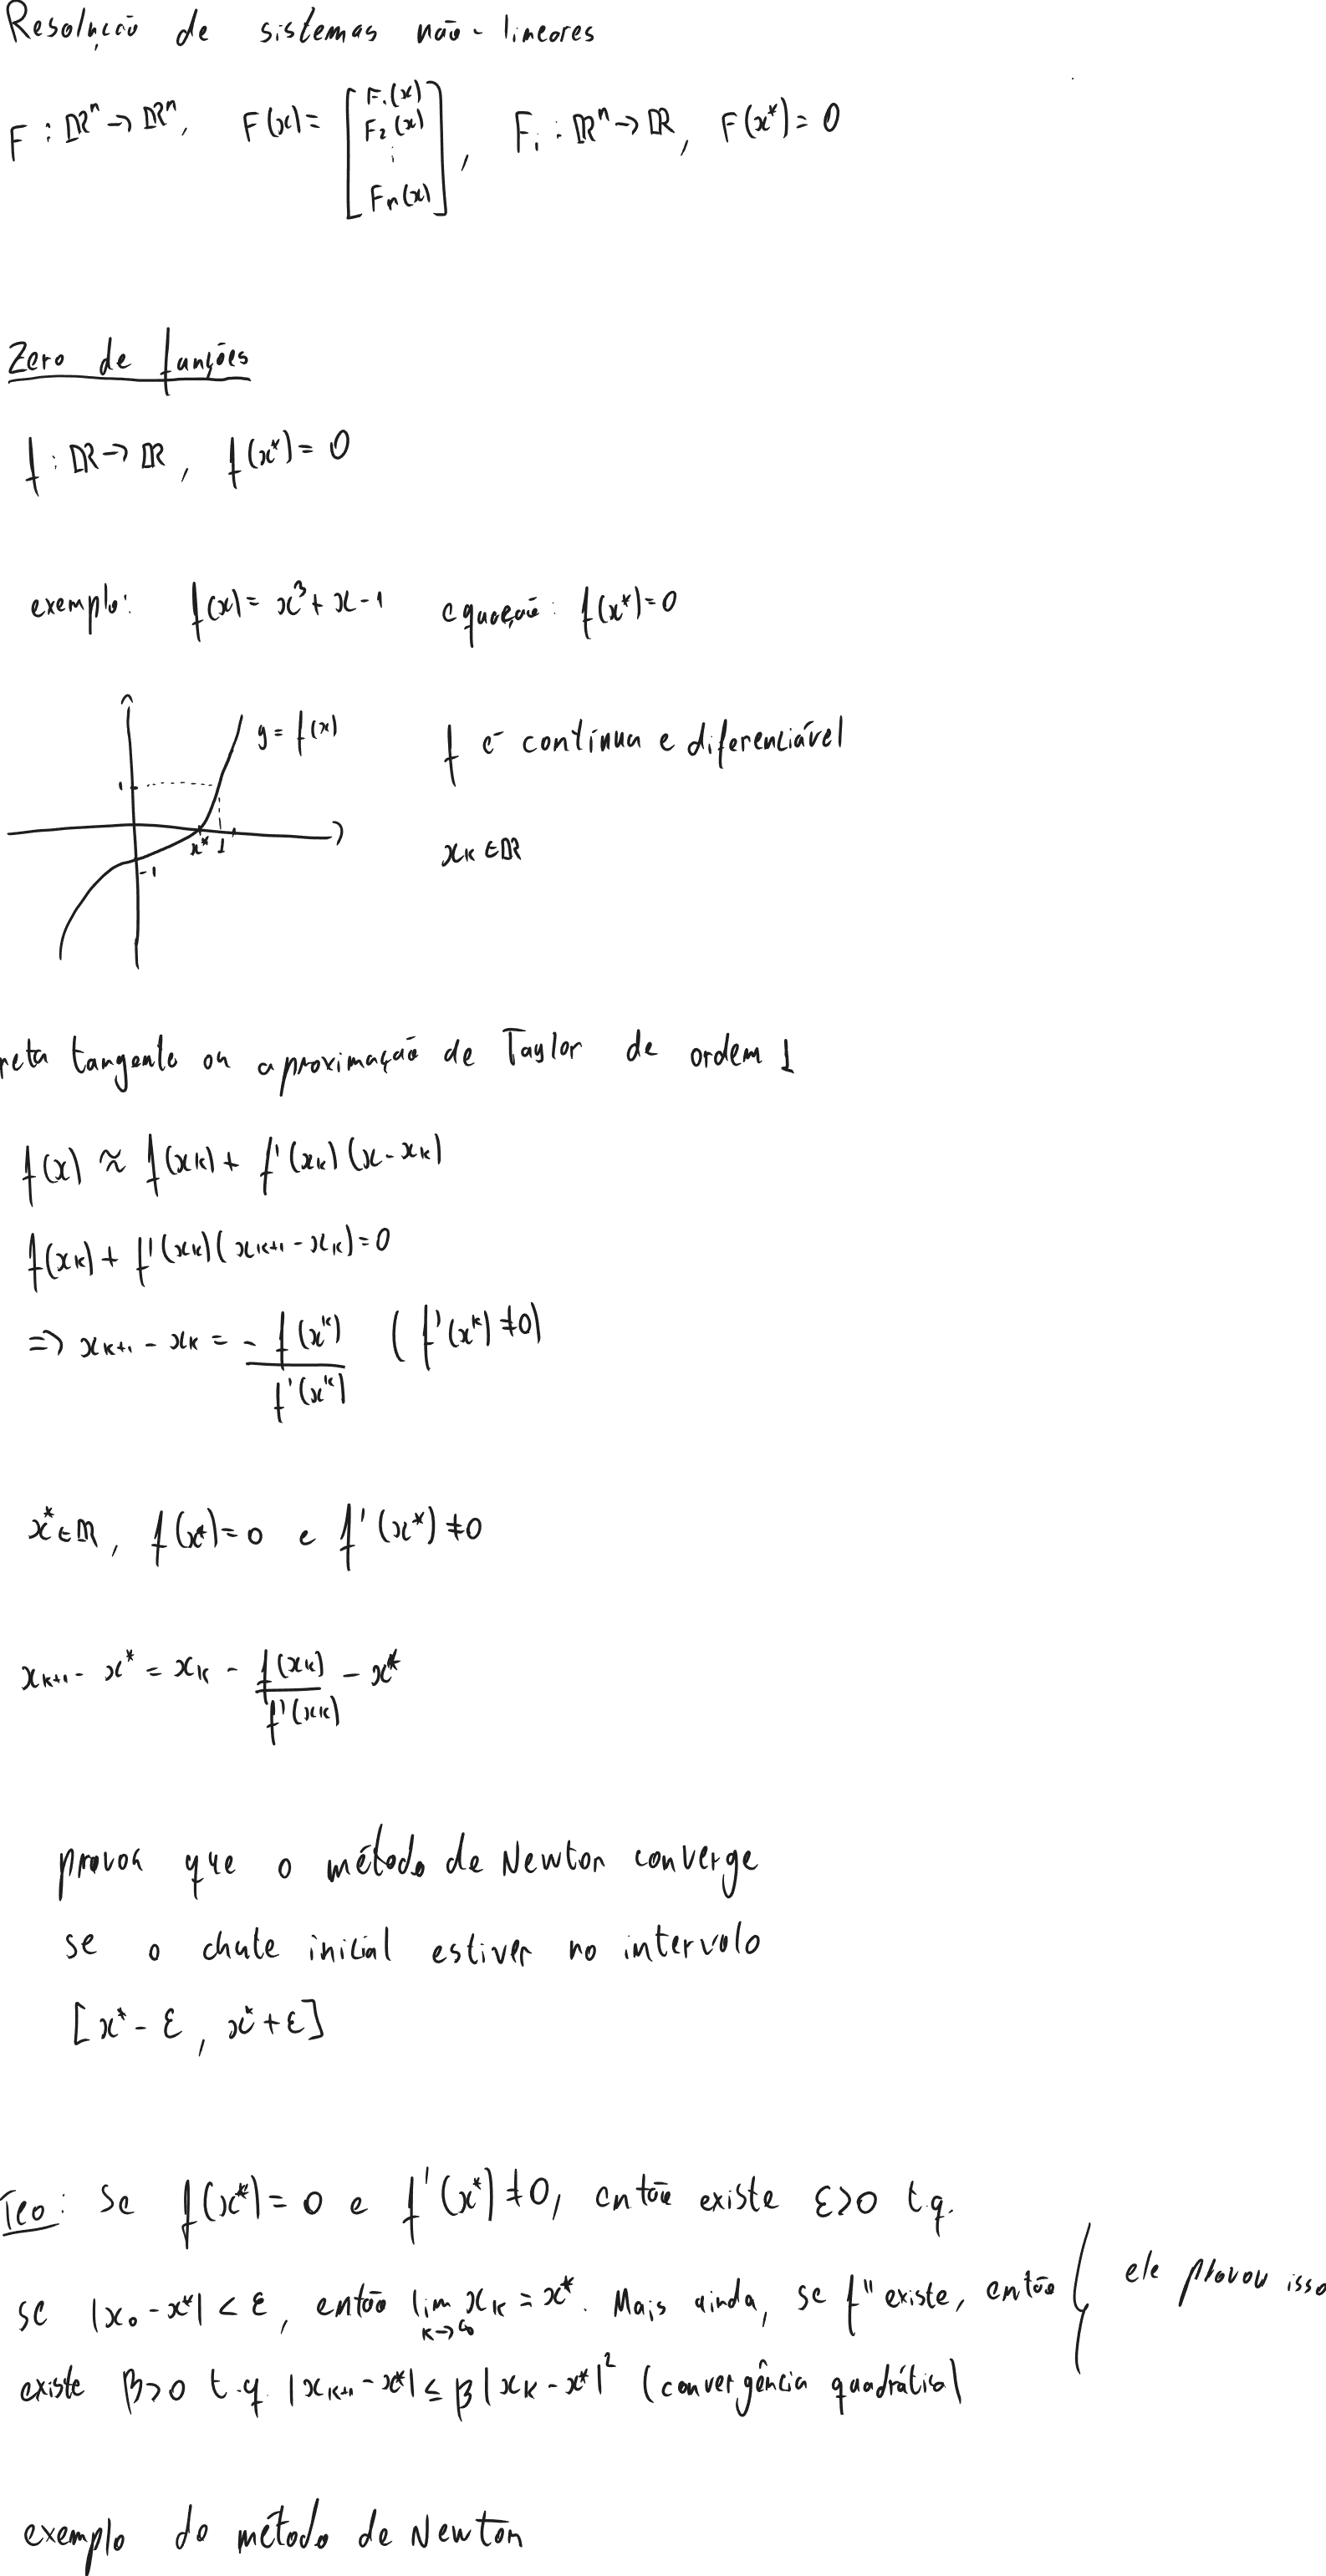 Resolução de sistemas não-lineares
F : ℝⁿ → ℝⁿ, F(x) = [F₁(x) F₂(x) ⋮ Fₙ(x)], Fᵢ : ℝⁿ → ℝ, F(x*) = 0
Zero de funções
f : ℝ → ℝ, f(x*) = 0
exemplo: f(x) = x³ + x - 1 equação: f(x*) = 0
y = f(x)
f é contínua e diferenciável
1
x* 1
-1
xₖ ∈ ℝ
reta tangente ou aproximação de Taylor de ordem 1
f(x) ≈ f(xₖ) + f'(xₖ)(x - xₖ)
f(xₖ) + f'(xₖ)(xₖ₊₁ - xₖ) = 0
=> xₖ₊₁ - xₖ = - f(xᵏ) / f'(xᵏ) (f'(xᵏ) ≠ 0)
x* ∈ ℝ, f(x*) = 0 e f'(x*) ≠ 0
xₖ₊₁ - x* = xₖ - f(xₖ) / f'(xₖ) - x*
provou que o método de Newton converge
se o chute inicial estiver no intervalo
[x* - ε, x* + ε]
Teo: Se f(x*) = 0 e f'(x*) ≠ 0, então existe ε > 0 t.q.
se |x₀ - x*| < ε, então lim xₖ = x*. Mais ainda, se f'' existe, então
k → ∞
existe β > 0 t.q. |xₖ₊₁ - x*| ≤ β |xₖ - x*|² (convergência quadrática)
ele provou isso
exemplo do método de Newton